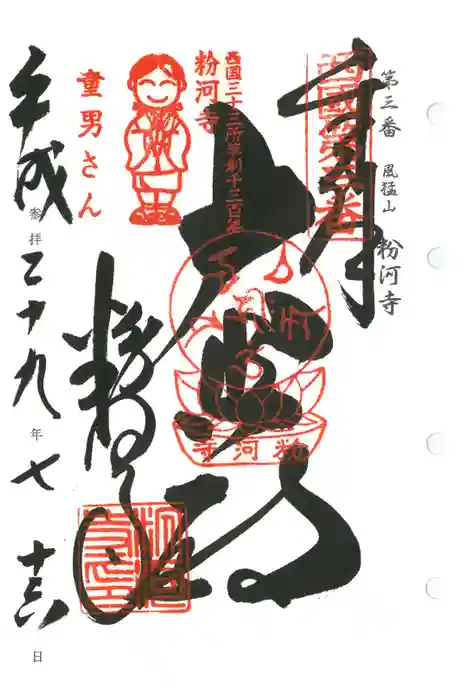 第三番 風猛山 粉河寺
奉拝
西國第三番
大悲殿
西国三十三所草創千三百年
粉河寺
童男さん
粉河寺
粉河寺
平成二十九年七月十六日
参拝